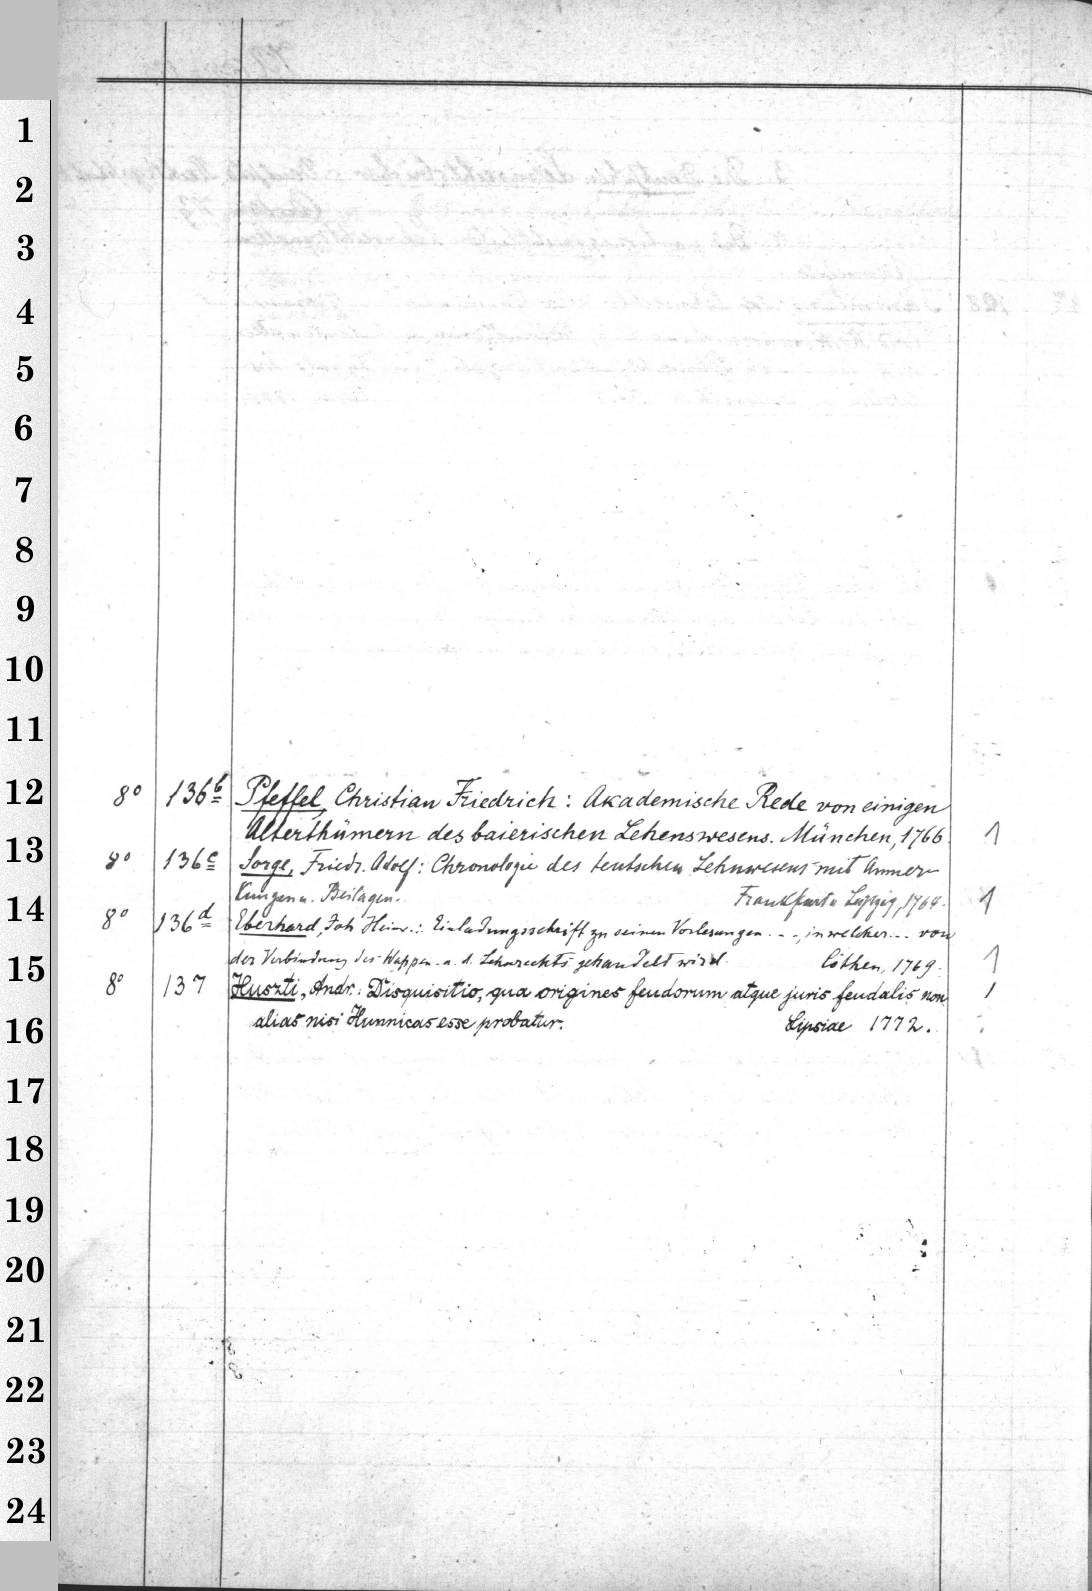 1
2
3
4
5
6
7
8
9
10
11
12
13
14
15
16
17
18
19
20
21
22
23
24
8° 136b Pfeffel, Christian Friedrich: Akademische Rede von einigen
Alterthümern des baierischen Lehenswesens. München, 1766. 1
8° 136c Sorge, Friedr. Adolf: Chronologie des teutschen Lehnwesens mit Anmer-
kungen u. Beilagen. Frankfurt u Leipzig, 1764. 1
8° 136d Eberhard, Joh Heinr.: Einladungsschrift zu seinen Vorlesungen ..., in welcher ... von
der Verbindung des Wappen- u. d. Lehnrechts gehandelt wird. Cöthen, 1769. 1
8° 137 Huszti, Andr.: Disquisitio, qua origines feudorum atque juris feudalis non
alias nisi Hunnicas esse probatur. Lipsiae 1772. 1